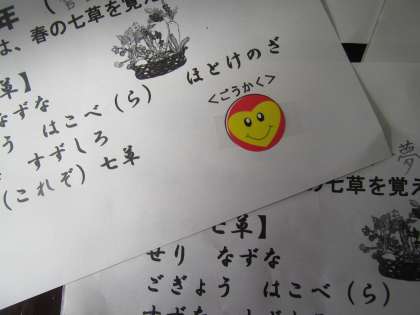 年 (
は、春の七草を覚え
ほとけのざ
<ごうかく>
草】
なずな
う はこべ(ら)
すずしろ
(これぞ)七草
夢
の七草を覚え
七草】
せり なずな
ごぎょう はこべ(ら)